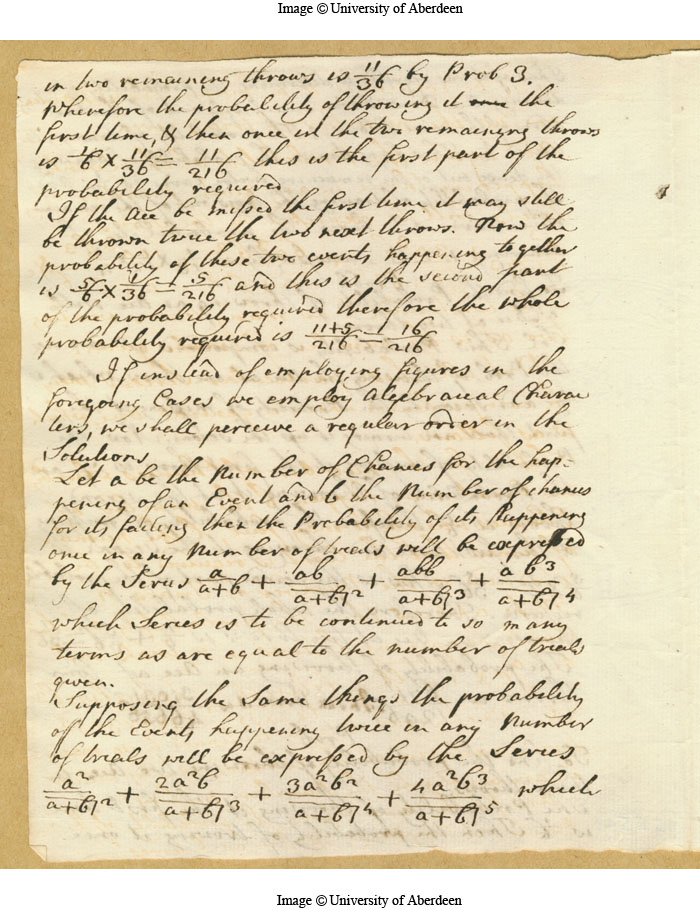 Image © University of Aberdeen
in two remaining throws is 11/36 by Prob 3.
Wherefore the probability of throwing it the
first time, & then once in the two remaining throws
is 1/6 × 11/36 = 11/216 this is the first part of the
probability required
If the ace be missed the first time it may still
be thrown twice the two next throws. Now the
probability of these two events happening together
is 5/6 × 1/36 = 5/216 and this is the second part
of the probability required therefore the whole
probability required is 11+5/216 = 16/216
If instead of employing figures in the
foregoing Cases we employ Algebraical Charac
ters, we shall perceive a regular order in the
Solutions
Let a be the Number of Chances for the hap-
pening of an Event and b the Number of chances
for its failing then the Probability of its Happening
once in any Number of trials will be expressed
by the Series a/a+b + ab/a+b|2 + abb/a+b|3 + ab3/a+b|4
which Series is to be continued to so many
terms as are equal to the number of trials
given.
Supposing the Same things the probability
of the Events happening twice in any Number
of trials will be expressed by the Series
a2/a+b|2 + 2a2b/a+b|3 + 3a2b2/a+b|4 + 4a2b3/a+b|5 which
Image © University of Aberdeen